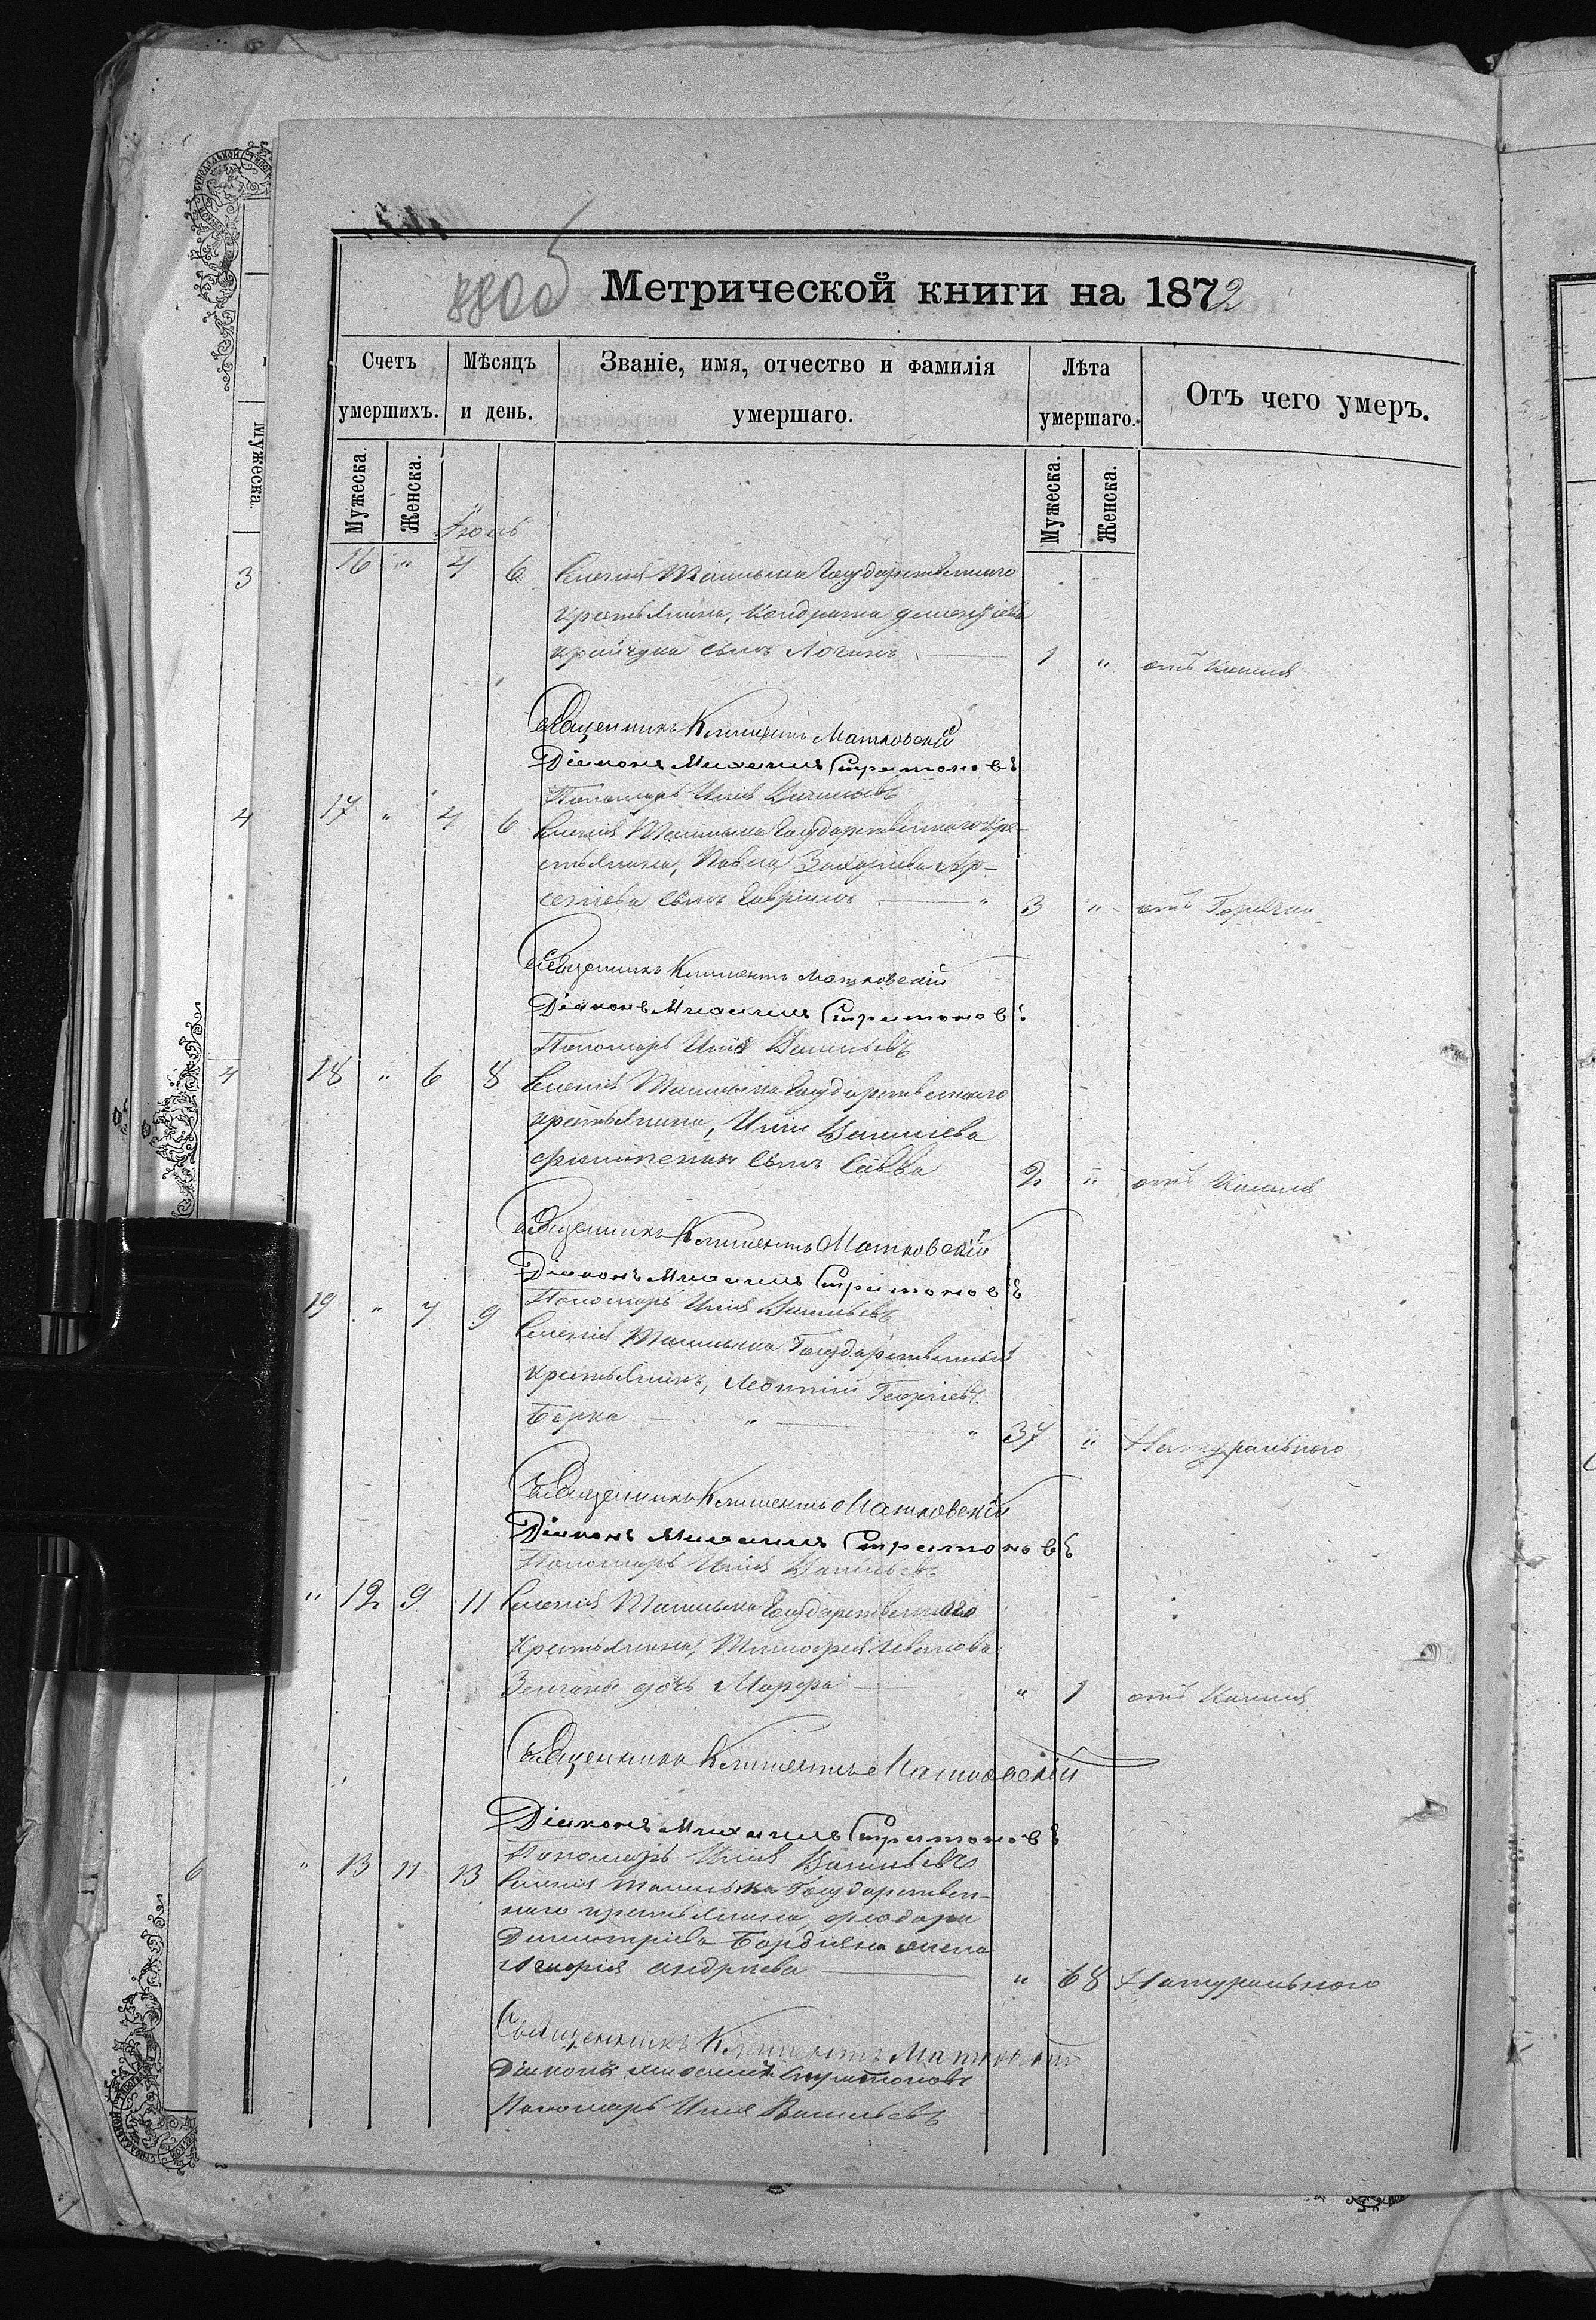 880об
Метрической книги на 1872
Счетъ умершихъ. Мѣсяцъ и день. Званіе, имя, отчество и фамилія умершаго. Лѣта умершаго. Отъ чего умеръ.
Мужеска. Женска. Мужеска. Женска.
Мужеска.
3
4
4
6
16 " 4 6 Селенія Ташлыка Государственнаго
крестьянина, Кондрата
сынъ Логинъ 1 " отъ Кашля
Священникъ Климентъ Матковскій
Діаконъ Михаилъ Стратоновъ
Пономарь Илія Васильевъ
17 " 4 6 Селенія Ташлыка Государственнаго кре-
стьянина, Павла Захаріева Ар-
сеніева сынъ Гавріилъ " 3 " отъ Горячки
Священникъ Климентъ Матковскій
Діаконъ Михаилъ Стратоновъ
Пономарь Илія Васильевъ
18 " 6 8 Селенія Ташлыка Государственнаго
крестьянина, Иліи Василіева
сынъ Савва 2 " отъ Кашля
Священникъ Климентъ Матковскій
Діаконъ Михаилъ Стратоновъ
Пономарь Илія Васильевъ
19 " 7 9 Селенія Ташлыка Государственный
крестьянинъ, Леонтій Георгіевъ
Берка " " 37 " Натуральнаго
Священникъ Климентъ Матковскій
Діаконъ Михаилъ Стратоновъ
Пономарь Илія Васильевъ
" 12 9 11 Селенія Ташлыка Государственнаго
Крестьянина, Тимофея Иванова
дочь Марфа " 1 отъ Кашля
Священникъ Климентъ Матковскій
Діаконъ Михаилъ Стратоновъ
Пономарь Илія Васильевъ
" 13 11 13 Селенія Ташлыка Государствен-
наго крестьянина, Феодора
Димитріева Бордіяна жена
андріева " 68 Натуральнаго
Священникъ Климентъ Матковскій
Діаконъ Михаилъ Стратоновъ
Пономарь Илія Васильевъ